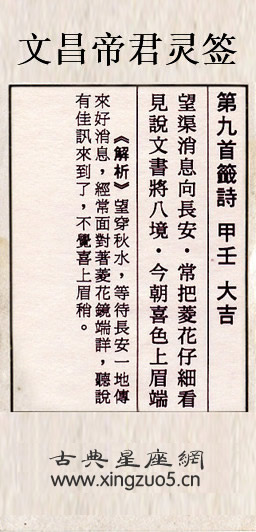 文昌帝君灵签
第九首籤詩 甲壬 大吉
望渠消息向長安・常把菱花仔細看
見說文書將八境・今朝喜色上眉端
《解析》望穿秋水，等待長安一地傳
來好消息，經常面對著菱花鏡端詳，聽說
有佳訊來到了，不覺喜上眉稍。
古典星座網
www.xingzuo5.cn